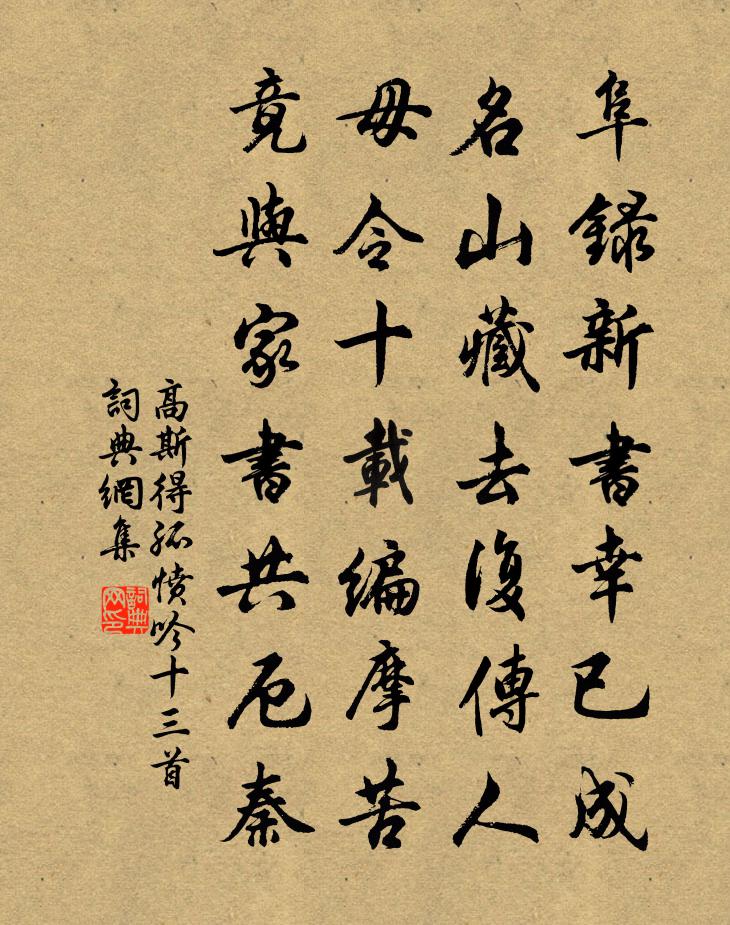 阜錄新書幸已成
名山藏去復傳人
毋令十載編摩苦
竟與家書共厄秦
高斯得孤憤吟十三首
詞典網集
詞典網印